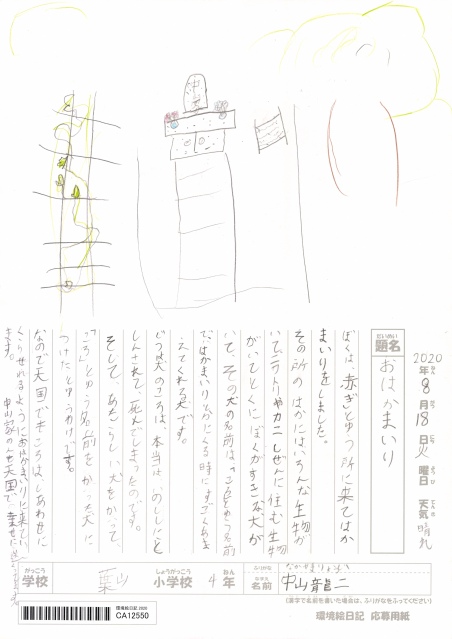 中山
だいめい
題名
おはかまいり
2020年8月18日火曜日 天気 晴れ
ぼくは、赤ぎとゆう所に来てはか
まいりをしました。
その所のはかにはいろんな生物が
いてニワトリやカニしぜんに住む生物
がいてとくにぼくがすきな犬が
いて、その犬の名前は「ころ」とゆう名前
で、はかまいりとかにくる時にすごくあま
えてくれる犬です。
じつは犬のころは、本当は、いのししにと
しんされて死んでしまったのです。
そして、あたらしい犬をかって、
「ころ」とゆう名前をかった犬に
つけたとゆうわけです。
なので天国でもころは、しあわせに
くらせれるようにおはかまいりに来てい
ます。
中山家のみんな天国で幸せに
がっこう
学校
葉山
しょうがっこう
小学校
4
ねん
年
ふりがな
なまえ
名前
中山龍二
(漢字で名前を書いた場合は、ふりがなをふってください)
環境絵日記 2020
CA12550
環境絵日記 応募用紙